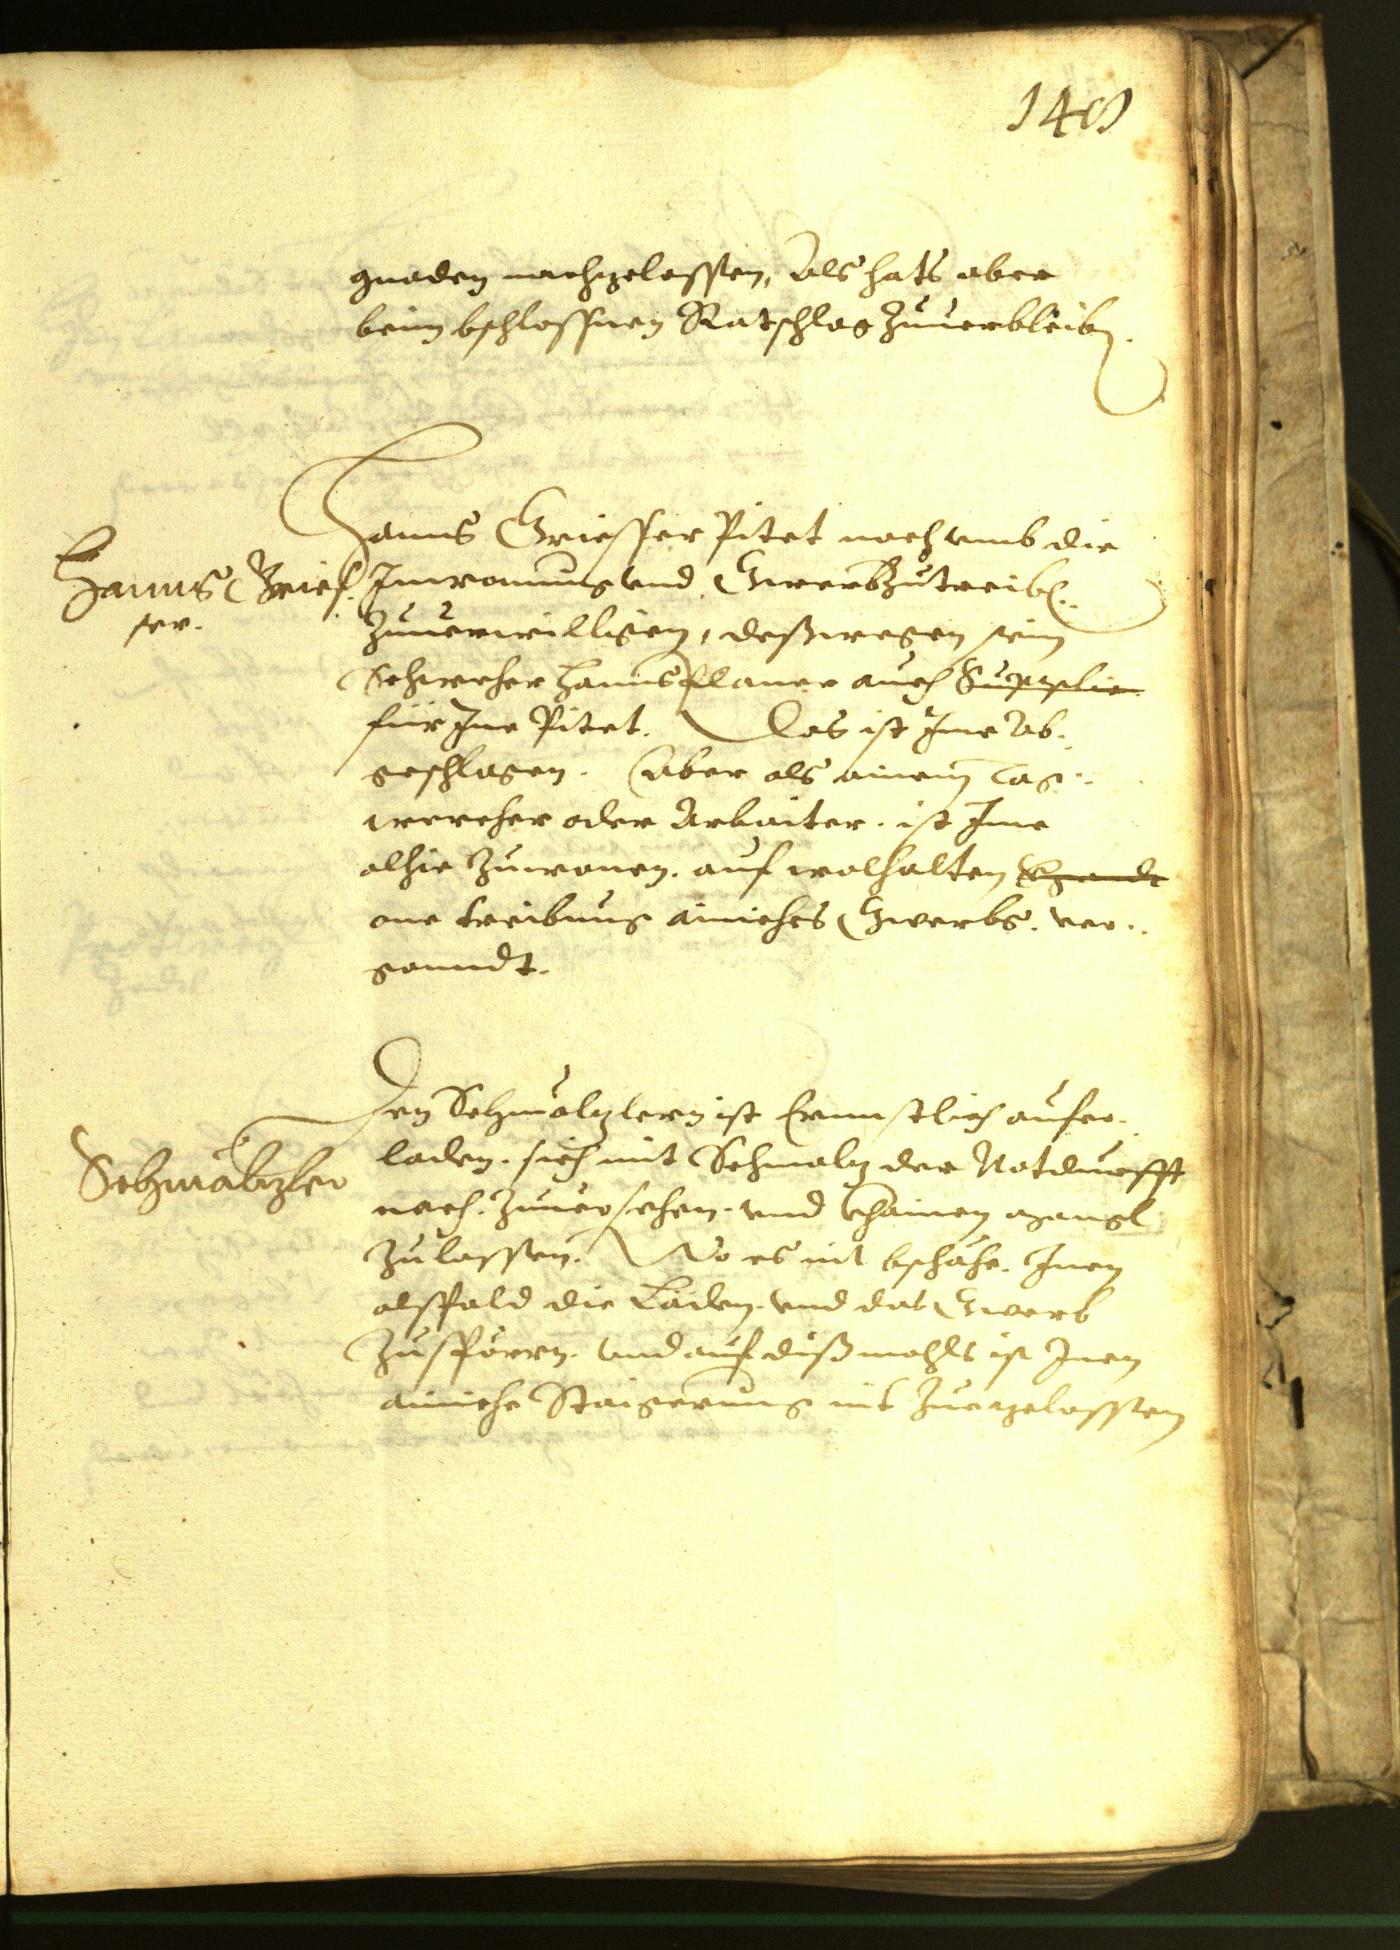 140
gnaden nachgelassen, Als hats aber
beim bschlossnen Ratschlag Zuuerbleib[en].
Hanns Griesser
Hanns Griesser Pitet noch vmb die
Inwonung vnd Gwerb Zutreib[en]
Zuuerwilligen, deßwegen sein
Schwecher Hanns Planer auch Supplic
für Ine Pitet. Das ist Ime Ab-
geschlagen. Aber als ainem Tag-
wercher oder Arbaiter. ist Ime
alhie Zuwonen. auf wolhalten
one treibung ainiches Gwerbs. ver-
gonndt.
Schmältzler
Den Schmältzlern ist Ernnstlich aufer-
laden. sich mit Schmaltz der Notdurfft
nach. Zuuersehen. vnd khainen mangl
Zulassen. Wo es nit bschähe. Inen
alspald die Läden. vnd das Gwerb
Zuspörrn. vnd auf dißmahls ist Inen
ainiche Staigerung nit Zuegelassen